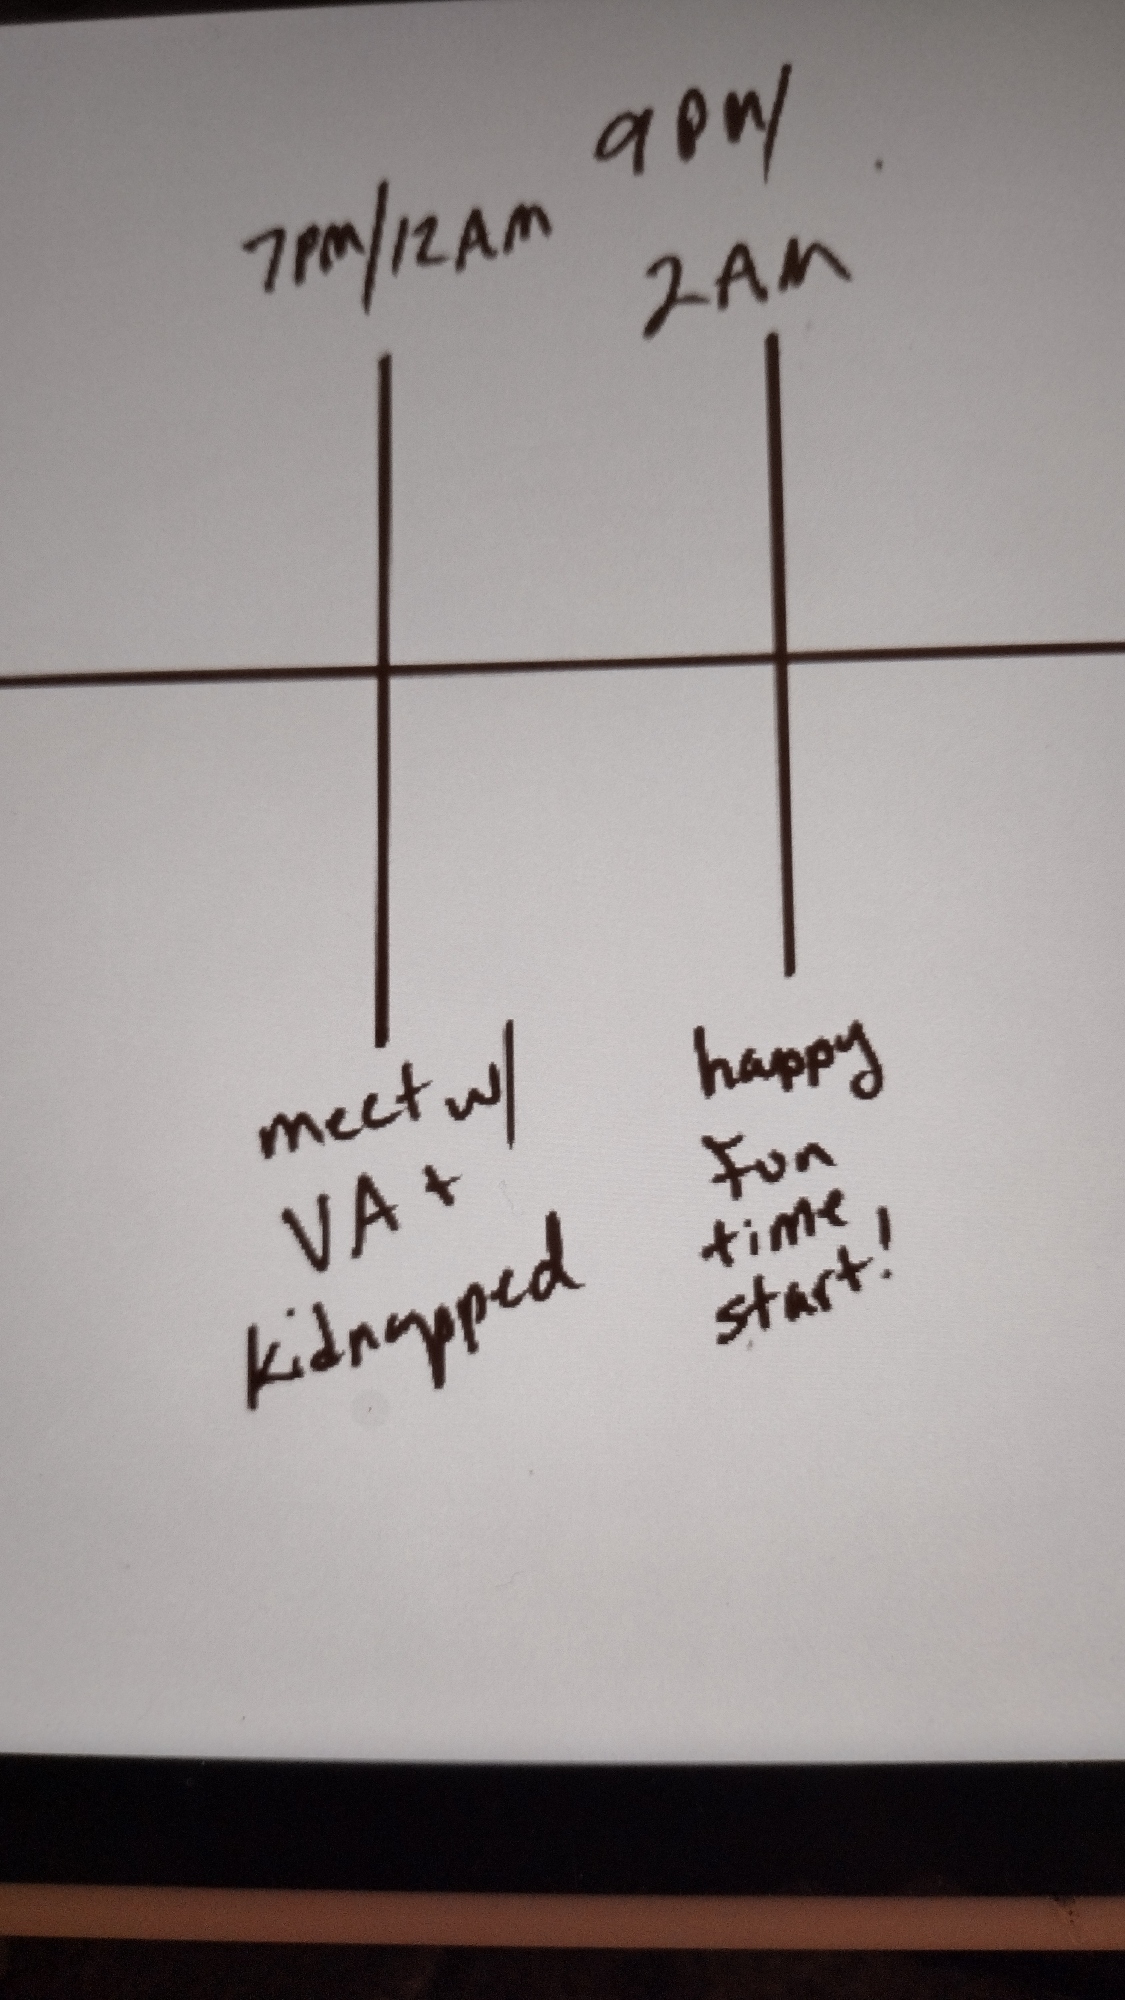 7PM/12AM
9PM/
2AM
meet w/
VA +
kidnapped
happy
Fun
time
start!